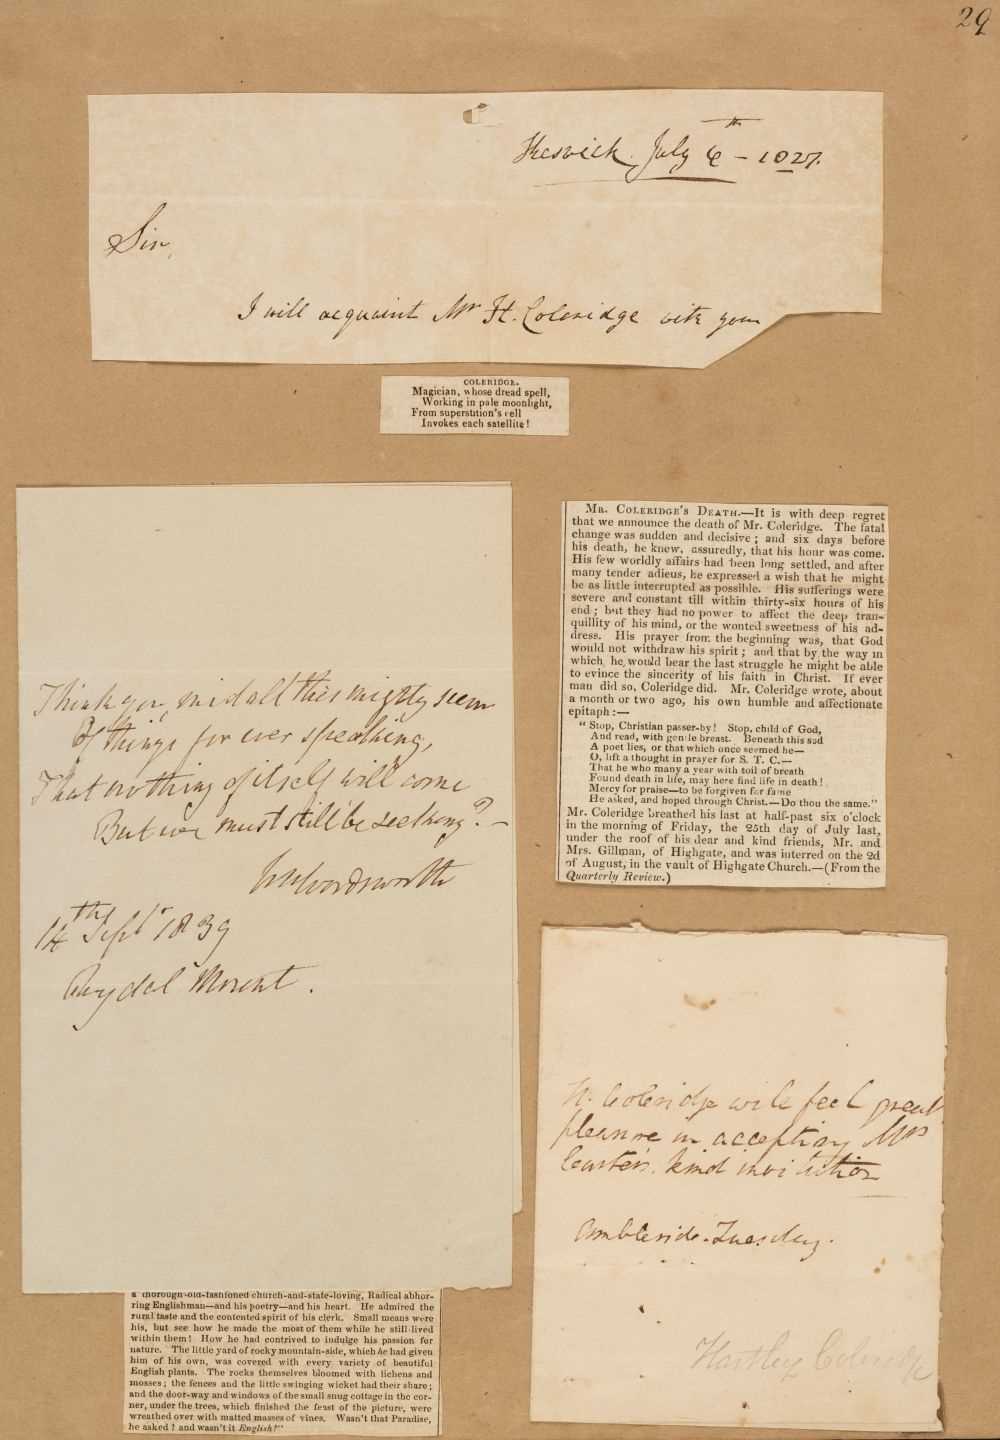 29
Keswick. July 6th - 1827.
Sir,
I will acquaint Mr H. Coleridge with your
COLERIDGE.
Magician, whose dread spell,
Working in pale moonlight,
From superstition's cell
Invokes each satellite!
Think you, mid all this mighty sum
Of things for ever speaking,
That nothing of itself will come
But we must still be seeking? -
Wm Wordsworth
14th Septr 1839
Rydal Mount.
MR. COLERIDGE'S DEATH.—It is with deep regret
that we announce the death of Mr. Coleridge. The fatal
change was sudden and decisive; and six days before
his death, he knew, assuredly, that his hour was come.
His few worldly affairs had been long settled, and after
many tender adieus, he expressed a wish that he might
be as little interrupted as possible. His sufferings were
severe and constant till within thirty-six hours of his
end; but they had no power to affect the deep tran-
quillity of his mind, or the wonted sweetness of his ad-
dress. His prayer from the beginning was, that God
would not withdraw his spirit; and that by the way in
which he would bear the last struggle he might be able
to evince the sincerity of his faith in Christ. If ever
man did so, Coleridge did. Mr. Coleridge wrote, about
a month or two ago, his own humble and affectionate
epitaph:—
"Stop, Christian passer-by! Stop, child of God,
And read, with gentle breast. Beneath this sod
A poet lies, or that which once seemed he—
O, lift a thought in prayer for S. T. C.—
That he who many a year with toil of breath
Found death in life, may here find life in death!
Mercy for praise—to be forgiven for fame
He asked, and hoped through Christ.—Do thou the same."
Mr. Coleridge breathed his last at half-past six o'clock
in the morning of Friday, the 25th day of July last,
under the roof of his dear and kind friends, Mr. and
Mrs. Gillman, of Highgate, and was interred on the 2d
of August, in the vault of Highgate Church.—(From the
Quarterly Review.)
H. Coleridge will feel great
pleasure in accepting Mrs
kind invitation
Ambleside. Tuesday.
Hartley Coleridge
a thorough old-fashioned church-and-state-loving, Radical abhor-
ring Englishman—and his poetry—and his heart. He admired the
rural taste and the contented spirit of his clerk. Small means were
his, but see how he made the most of them while he still lived
within them! How he had contrived to indulge his passion for
nature. The little yard of rocky mountain-side, which he had given
him of his own, was covered with every variety of beautiful
English plants. The rocks themselves bloomed with lichens and
mosses; the fences and the little swinging wicket had their share;
and the door-way and windows of the small snug cottage in the cor-
ner, under the trees, which finished the feast of the picture, were
wreathed over with matted masses of vines. Wasn't that Paradise,
he asked? and wasn't it English?"